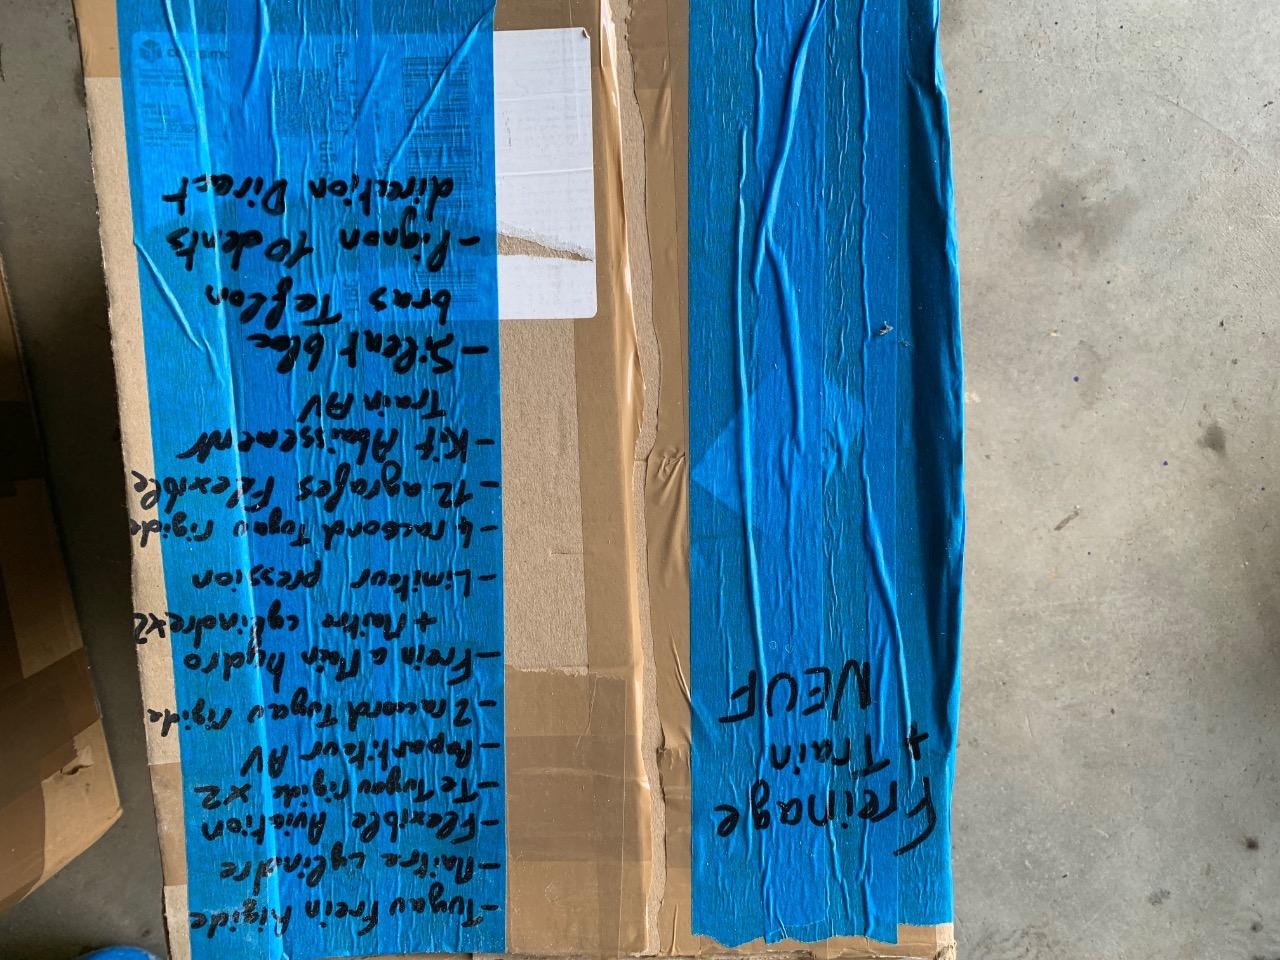 Freinage
+ Train
NEUF
- Tuyau Frein Rigide
- Maitre cylindre
- Flexible Aviation
- Te Tuyau rigide x2
- Repartiteur AV
- 2 raccord Tuyau rigide
- Frein a Main hydro
+ Maitre cylindre x2
- Limiteur pression
- 4 raccord Tuyau rigide
- 12 agrafes Flexible
- Kit Abaissement
Train AV
- Silent bloc
bras Teflon
- Pignon 10 dents
direction Direct